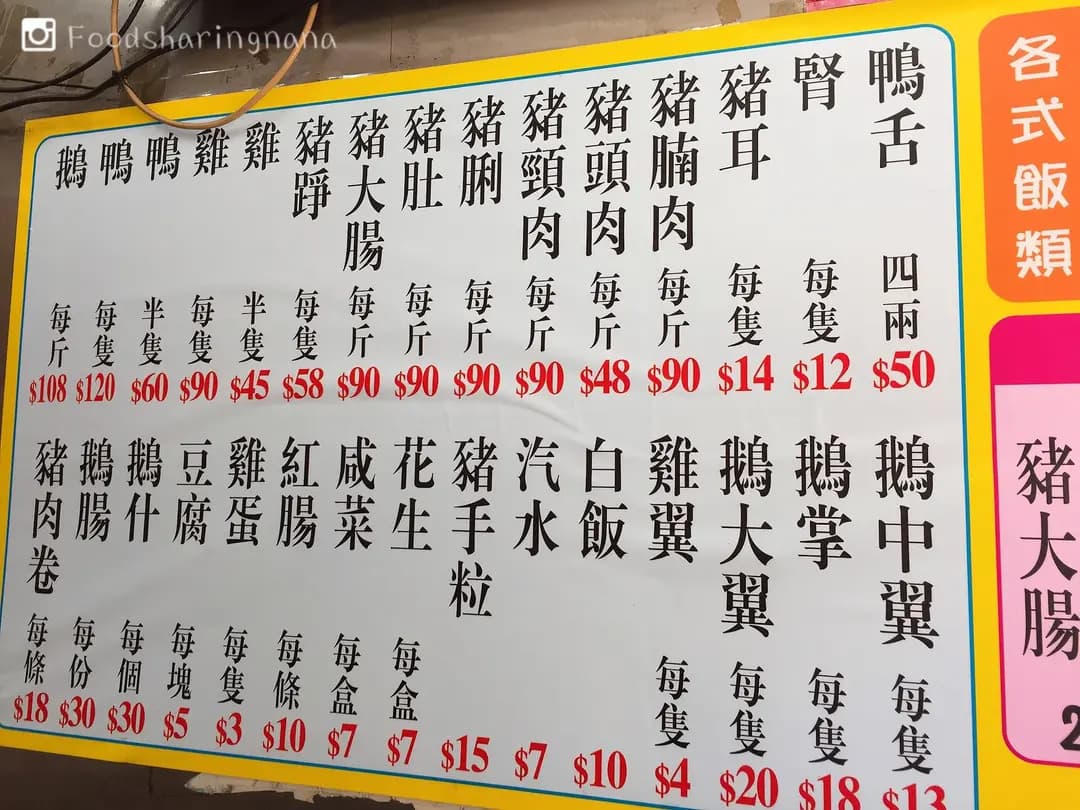 Foodsharingnana
各式飯類
豬大腸
鴨舌 四兩 $50
腎 每隻 $12
豬耳 每隻 $14
豬腩肉 每斤 $90
豬頭肉 每斤 $48
豬頸肉 每斤 $90
豬脷 每斤 $90
豬肚 每斤 $90
豬大腸 每斤 $90
豬踭 每隻 $58
雞 半隻 $45
雞 每隻 $90
鴨 半隻 $60
鴨 每隻 $120
鵝 每斤 $108
鵝中翼 每隻 $13
鵝掌 每隻 $18
鵝大翼 每隻 $20
雞翼 每隻 $4
白飯 $10
汽水 $7
豬手粒 $15
花生 每盒 $7
咸菜 每盒 $7
紅腸 每條 $10
雞蛋 每隻 $3
豆腐 每塊 $5
鵝什 每個 $30
鵝腸 每份 $30
豬肉卷 每條 $18